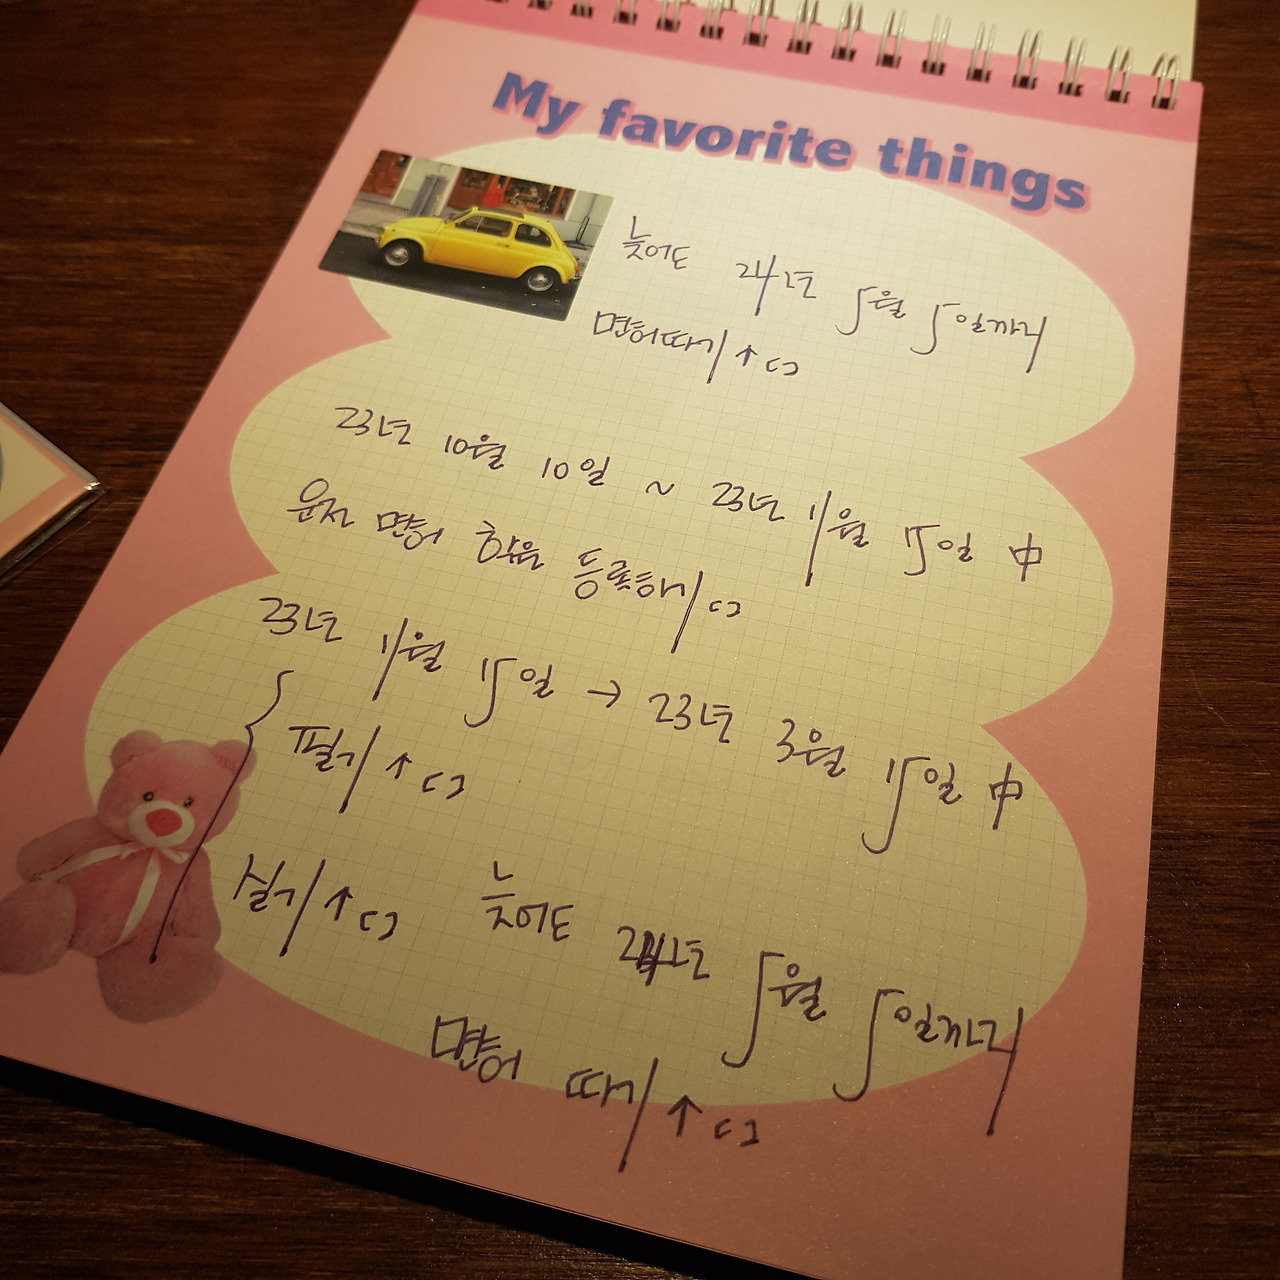 My favorite things
늦어도 24년 5월 5일까지
면허따기↑ㄷㄱ
23년 10월 10일 ~ 23년 11월 15일 中
운전 면허 학원 등록하기 ㄷㄱ
23년 11월 15일 → 23년 3월 15일 中
필기↑ㄷㄱ
실기↑ㄷㄱ 늦어도 24년 5월 5일까지
면허 따기↑ㄷㄱ